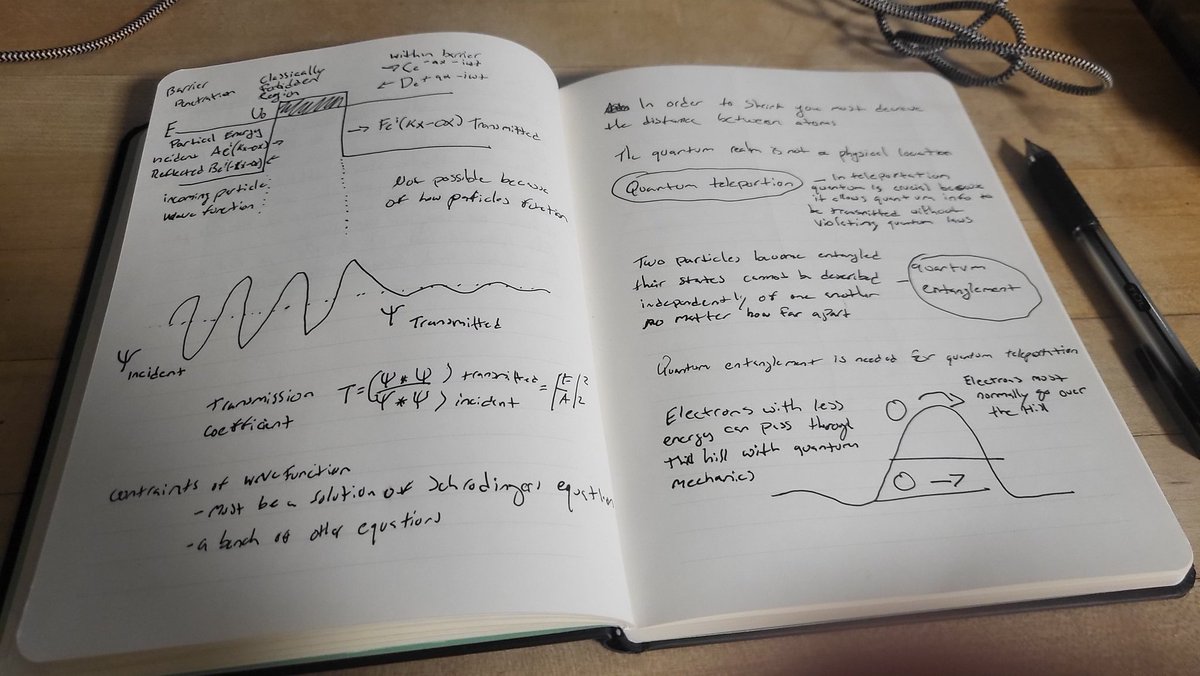 Barrier
Penetration
Classically
forbidden
Region
within barrier
→ Ce -αx -iωt
← De +αx -iωt
U₀
E
Partical Energy
incident Ae i(kx-ωx)
Reflected Be i(-kx-ωx)
incoming particle
wave function
→ Fe i(kx-ωx) Transmitted
Not possible because
of how particles function
Ψ incident
Ψ Transmitted
Transmission
coefficient
T = (Ψ*Ψ) transmitted / (Ψ*Ψ) incident = |F/A|²
contraints of wavefunction
- Must be a solution of Schrodingers equation
- a bunch of other equations
In order to shrink you must decrease
the distance between atoms
The quantum realm is not a physical location
Quantum teleportion
- In teleportation
quantum is crucial because
it allows quantum info to
be transmitted without
violating quantum laws
Two particles become entangled
their states cannot be described
independently of one another
no matter how far apart
- quantum
entanglement
Quantum entanglement is needed for quantum teleportation
Electrons with less
energy can pass through
hill with quantum
mechanics
Electrons must
normally go over
the hill